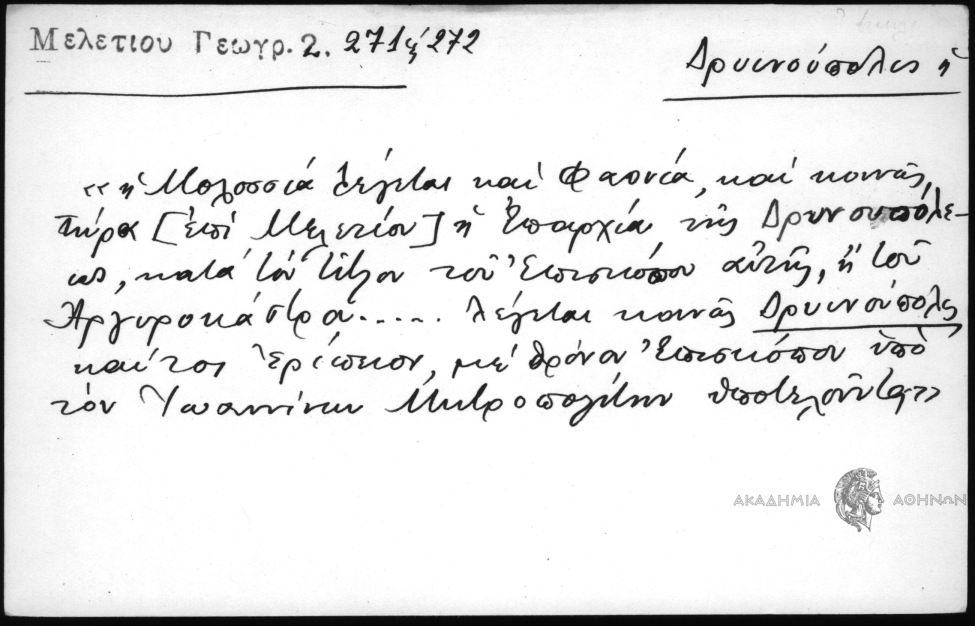 Μελετίου Γεωγρ. 2. 271 & 272
Δρυϊνούπολις ἡ
«ἡ Μολοσσία λέγεται καὶ Φαονία, καὶ κοινῶς
τώρα [ἐπὶ Μελετίου] ἡ Ἐπαρχία τῆς Δρυνουπόλε-
ως, κατὰ τὸν Τίτλον τοῦ Ἐπισκόπου αὐτῆς, ἢ τοῦ
Ἀργυροκάστρου..... λέγεται κοινῶς Δρυινούπολις
καίτοι Ἐρείπιον, μὲ θρόνον Ἐπισκόπου ὑπὸ
τὸν Ἰωαννίνων Μητροπολίτην ὑποτελοῦντα»
ΑΚΑΔΗΜΙΑ ΑΘΗΝΩΝ